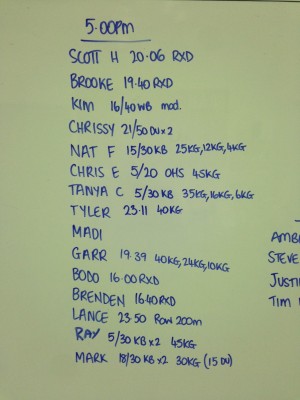 5.00PM
SCOTT H 20.06 RXD
BROOKE 19.40 RXD
KIM 16/40 WB mod.
CHRISSY 21/50 DU x 2
NAT F 15/30 KB 25KG, 12KG, 4KG
CHRIS E 5/20 OHS 45KG
TANYA C 5/30 KB 35KG, 16KG, 6KG
TYLER 23.11 40KG
MADI
GARR 19.39 40KG, 24KG, 10KG
BODO 16.00 RXD
BRENDEN 16.40 RXD
LANCE 23.50 ROW 200m
RAY 5/30 KB x 2 45KG
MARK 18/30 KB x 2 30KG (15 DU)
AMB
STEVE
JUSTI
TIM